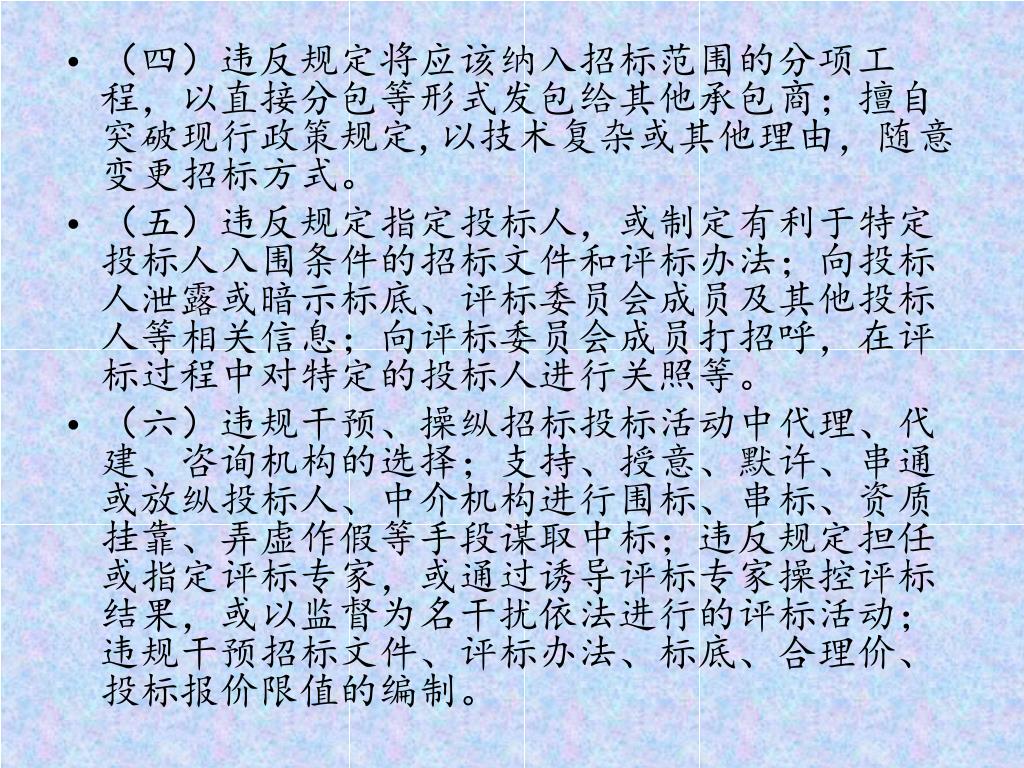 • （四）违反规定将应该纳入招标范围的分项工
程，以直接分包等形式发包给其他承包商；擅自
突破现行政策规定,以技术复杂或其他理由，随意
变更招标方式。
• （五）违反规定指定投标人，或制定有利于特定
投标人入围条件的招标文件和评标办法；向投标
人泄露或暗示标底、评标委员会成员及其他投标
人等相关信息；向评标委员会成员打招呼，在评
标过程中对特定的投标人进行关照等。
• （六）违规干预、操纵招标投标活动中代理、代
建、咨询机构的选择；支持、授意、默许、串通
或放纵投标人、中介机构进行围标、串标、资质
挂靠、弄虚作假等手段谋取中标；违反规定担任
或指定评标专家，或通过诱导评标专家操控评标
结果，或以监督为名干扰依法进行的评标活动；
违规干预招标文件、评标办法、标底、合理价、
投标报价限值的编制。